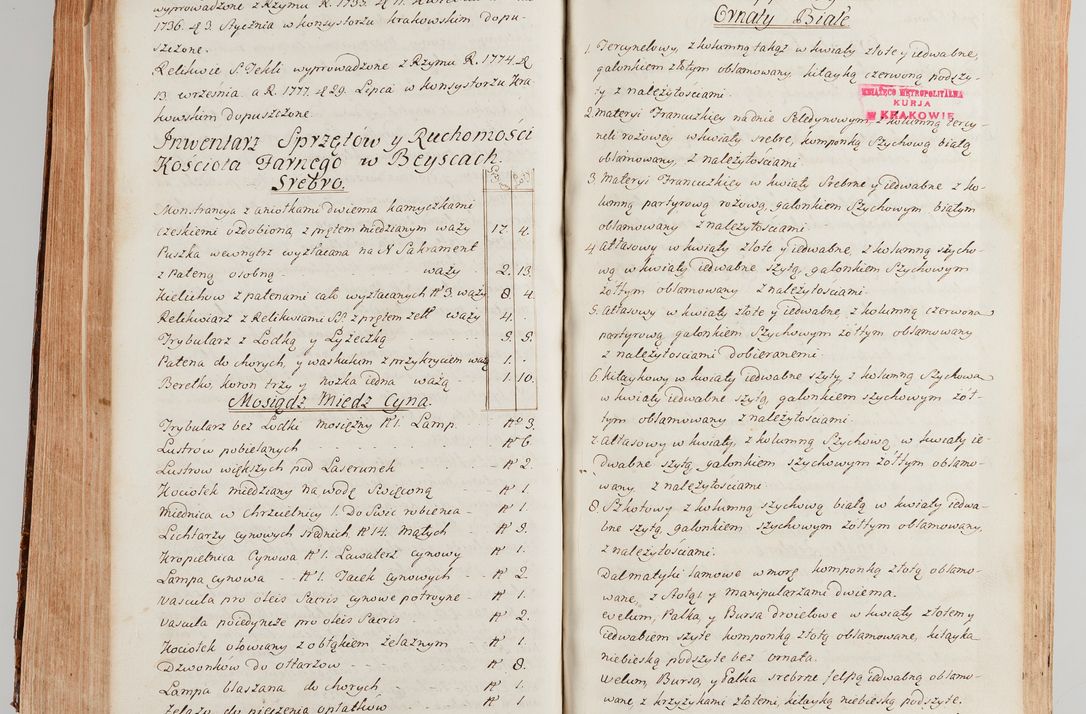 wyprowadzone z Rzymu R. 1735. d 11. Kwietnia
1736. d 3. Stycznia w konsystorzu krakowskim dopu-
szczone.
Relikwie S. Tekli wyprowadzone z Rzymu R. 1774. d
13. września. a R. 1777. d 29. Lipca w konsystorzu Kra-
kowskim dopuszczone.
Inwentarz Sprzętów y Ruchomości
Kościoła Farnego w Beyscach.
Srebro.
Monstrancya z aniołkami dwiema kamyczkami
czeskiemi ozdobioną z prętem miedzianym waży 17. 4.
Puszka wewnątrz wyzłacana na N Sakrament
z Pateną osobną waży 2. 13
Kielichow z patenami cało wyzłacanych N 3. ważą 8 4.
Relikwiarz z Relikwiami SS. z prętem żelł waży 4.
Trybularz z Lodką y Łyżeczką 9. 9.
Patena do chorych, y waskulum z przykryciem ważą 1.
Berełko, koron trzy y nozka iedna ważą 1. 10.
Mosiądz Miedz Cyna.
Trybularz bez Lodki mosiężny N 1. Lamp. N 3.
Lustrów pobielanych N 6
Lustrow większych pod Laserunek N 2.
Kociołek miedziany na wodę Swięconą N 1.
Miednica w chrzcielnicy 1. Do Swic robienia N 1.
Lichtarzy cynowych srednich N 14. Małych N 9.
Kropielnica Cynowa N 1. Lawaterz cynowy N 1.
Lampa cynowa N 1. Tacek cynowych N 2.
Vascula pro oleis Sacris cynowe potroyne N 1.
Vascula poiedyncze pro oleis Sacris N 2.
Kociołek ołowiany z obłąkiem żelaznym N 1.
Dzwonkow do ołtarzow N 8.
Lampa blaszana do chorych N 1.
Żelazo do pieczenia opłatków N 1.
Ornaty Białe
1. Tercynelowy, z kolumną takąż w kwiaty złote y iedwabne,
galonkiem złotym oblamowany kitayką czerwoną podszy-
ty z nalezytosciami.
KSIĄŻĘCO METROPOLITALNA
KURJA
W KRAKOWIE
2. Materyi Francuzkiey na dnie Seledynowym, z kolumną tercy-
neli rożowey w kwiaty srebre, komponką Szychową białą
oblamowany, z należytościami.
3. Materyi Francuzkiey w kwiaty Srebrne y iedwabne z ko-
lumną partyrową rożową, galonkiem Szychowym białym
oblamowany z należytościami
4. Attasowy w kwiaty złote y iedwabne, z kolumną szycho-
wą w kwiaty iedwabne szytą, galonkiem Szychowym
żołtym oblamowany z należytościami.
5. Attasowy w kwiaty złote y iedwabne, z kolumną czerwoną
partyrową galonkiem Szychowym żołtym oblamowany
z należytosciami dobieranemi
6. Kitaykowy w kwiaty iedwabne szyty, z kolumną Szychową
w kwiaty iedwabne szytą, galonkiem szychowym żoł-
tym oblamowany z należytościami.
7. Attasowy w kwiaty, z kolumną Szychową w kwiaty ie-
dwabne szytą, galonkiem szychowym żołtym oblamo-
wany, z nalezytosciami
8. Szkotowy z kolumną szychową białą w kwiaty iedwa-
bne szytą, galonkiem szychowym żołtym oblamowany,
z należytościami.
Dalmatyki lamowe w morę komponką złotą oblamo-
wane, z Stołą y Manipularzami dwiema.
Welum, Palka, y Bursa Droietowe w kwiaty złotem y
iedwabiem szyte komponką złotą oblamowane, kitayką
niebieską podszyte bez ornata.
Welum, Bursa, y Palka srebrne felpą iedwabną oblamo-
wane, z krzyżykami złotemi, kitayką niebieską podszyte.